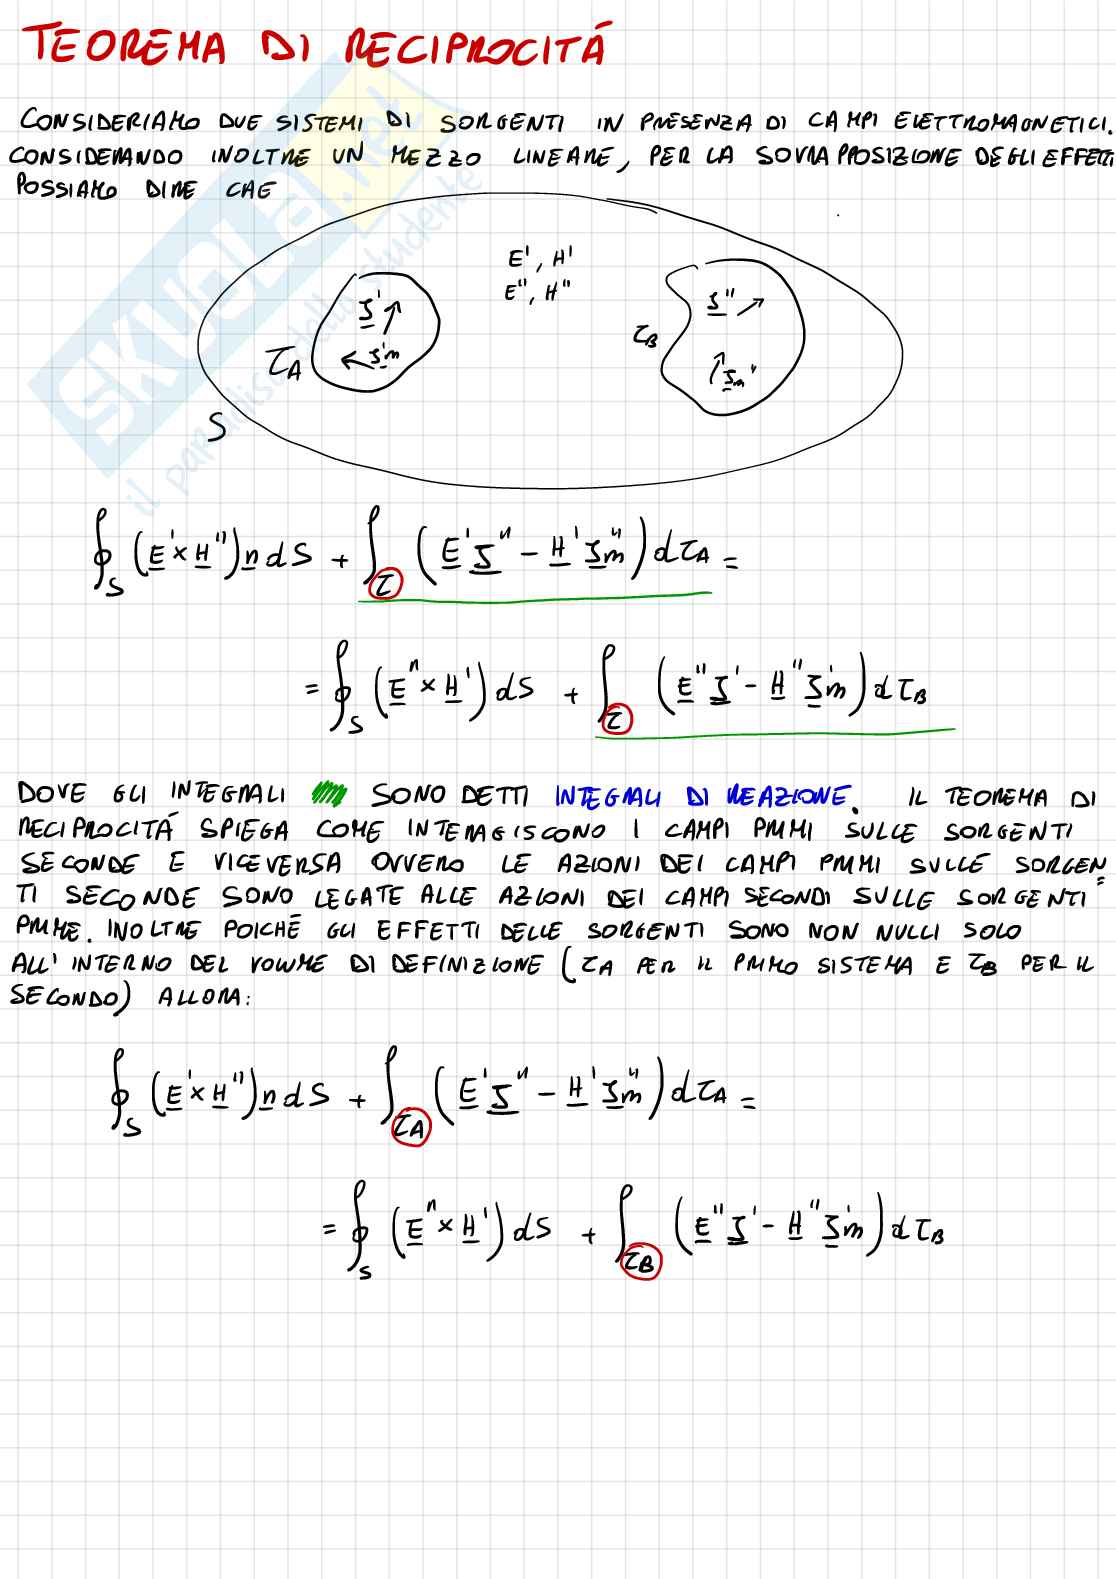 TEOREMA DI RECIPROCITÁ
CONSIDERIAMO DUE SISTEMI DI SORGENTI IN PRESENZA DI CAMPI ELETTROMAGNETICI.
CONSIDERANDO INOLTRE UN MEZZO LINEARE, PER LA SOVRAPPOSIZIONE DEGLI EFFETTI
POSSIAMO DIRE CHE
E', H'
E", H"
J'
J'm
τA
J"
Jm"
τB
S
SKUOLA.net
il paradiso dello studente
∮S (E' × H") n dS + ∫τ (E' J" − H' Jm") dτA =
= ∮S (E" × H') dS + ∫τ (E" J' − H" J'm) dτB
DOVE GLI INTEGRALI SONO DETTI INTEGRALI DI REAZIONE. IL TEOREMA DI
RECIPROCITÁ SPIEGA COME INTERAGISCONO I CAMPI PRIMI SULLE SORGENTI
SECONDE E VICEVERSA OVVERO LE AZIONI DEI CAMPI PRIMI SULLE SORGEN=
TI SECONDE SONO LEGATE ALLE AZIONI DEI CAMPI SECONDI SULLE SORGENTI
PRIME. INOLTRE POICHÉ GLI EFFETTI DELLE SORGENTI SONO NON NULLI SOLO
ALL'INTERNO DEL VOLUME DI DEFINIZIONE (τA PER IL PRIMO SISTEMA E τB PER IL
SECONDO) ALLORA:
∮S (E' × H") n dS + ∫τA (E' J" − H' Jm") dτA =
= ∮S (E" × H') dS + ∫τB (E" J' − H" J'm) dτB